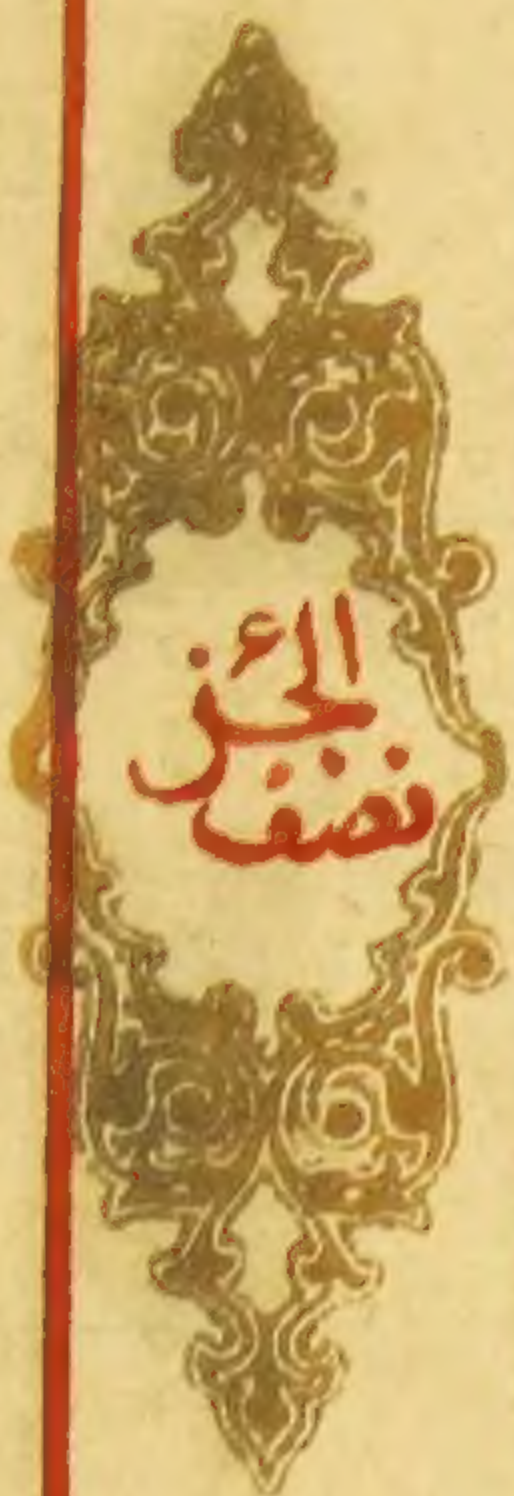 نصف
الجزء